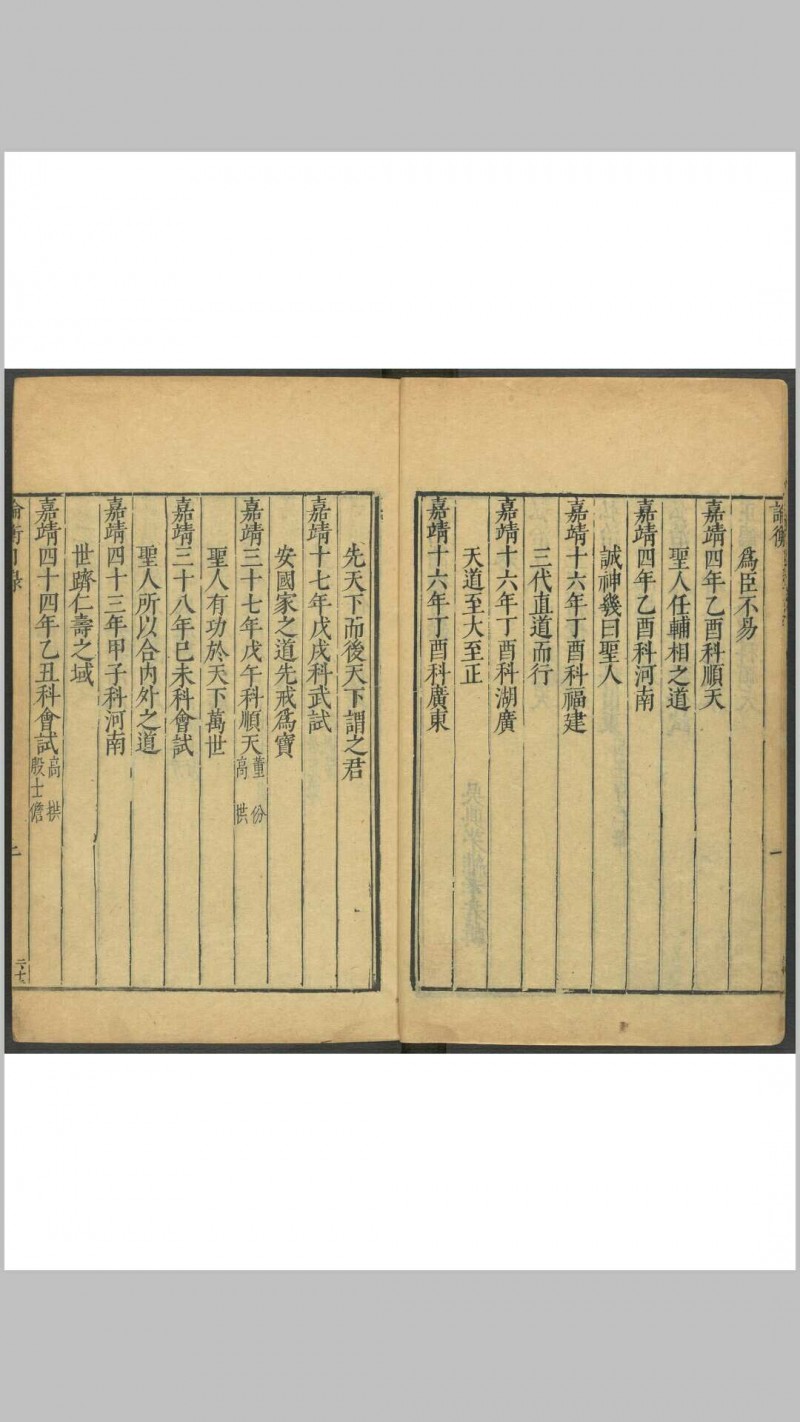 爲臣不易
嘉靖四年乙酉科順天
聖人任輔相之道
嘉靖四年乙酉科河南
誠神幾曰聖人
嘉靖十六年丁酉科福建
三代直道而行
嘉靖十六年丁酉科湖廣
天道至大至正
嘉靖十六年丁酉科廣東
先天下而後天下謂之君
嘉靖十七年戊戌科武試
安國家之道先戒爲寶
嘉靖三十七年戊午科順天
董份
高拱
聖人有功於天下萬世
嘉靖三十八年巳未科會試
聖人所以合内外之道
嘉靖四十三年甲子科河南
世躋仁壽之域
嘉靖四十四年乙丑科會試
高拱
殷士儋
二